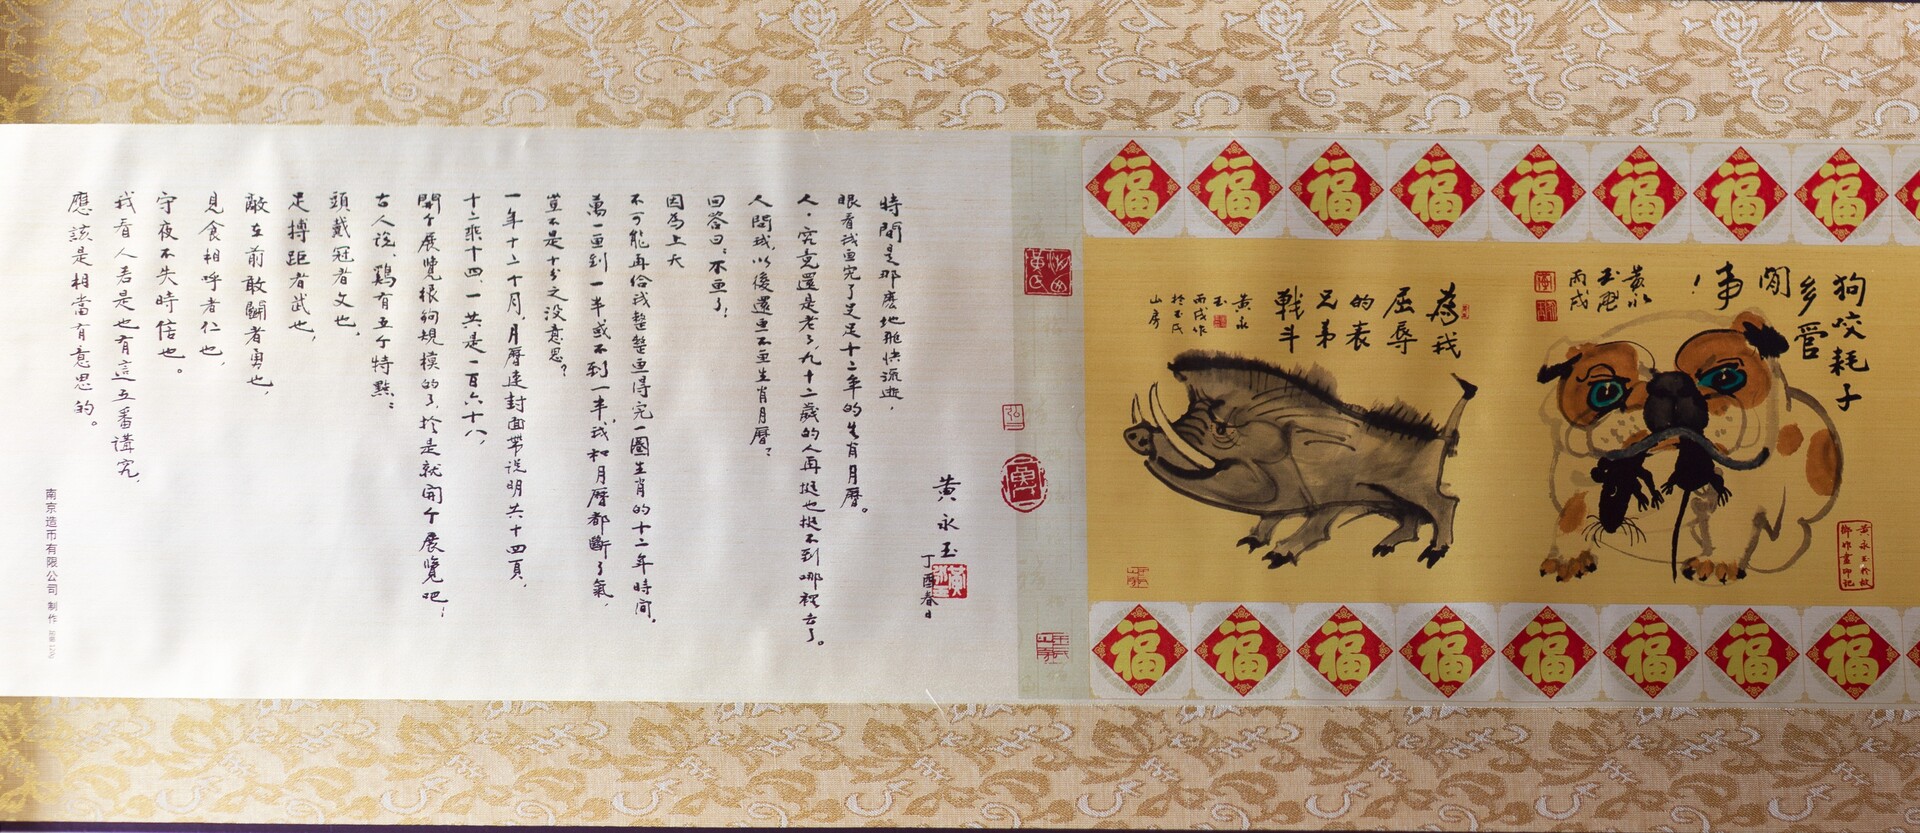 福 福 福 福 福 福 福 福
狗咬耗子
多管
閒
事！
黄永
玉
丙戌
黄永玉於故
鄉作畫印記
為我
屈辱
的表
兄弟
戰斗
黄永
玉
丙戌作
於玉氏
山房
福 福 福 福 福 福 福 福
黄永玉
丁酉春日
時間是那麽地飛快流逝，
眼看我画完了足足十二年的生肖月曆。
人，究竟還是老了，九十二歲的人再挺也挺不到哪裡去了。
人問我，以後還画不画生肖月曆？
回答曰：不画了！
因為上天
不可能再给我整整画得完一圈生肖的十二年時间。
萬一画到一半或不到一半，我和月曆都斷了氣，
豈不是十分之没意思？
一年十二个月，月曆連封面带说明共十四頁，
十二乘十四，一共是一百六十八，
開个展覽很夠規模的了，於是就開个展覽吧！
古人说，鷄有五个特點：
頭戴冠者文也，
足搏距者武也，
敵在前敢鬭者勇也，
見食相呼者仁也，
守夜不失時信也。
我看人若是也有這五番講究，
應該是相當有意思的。
南京造币有限公司 制作